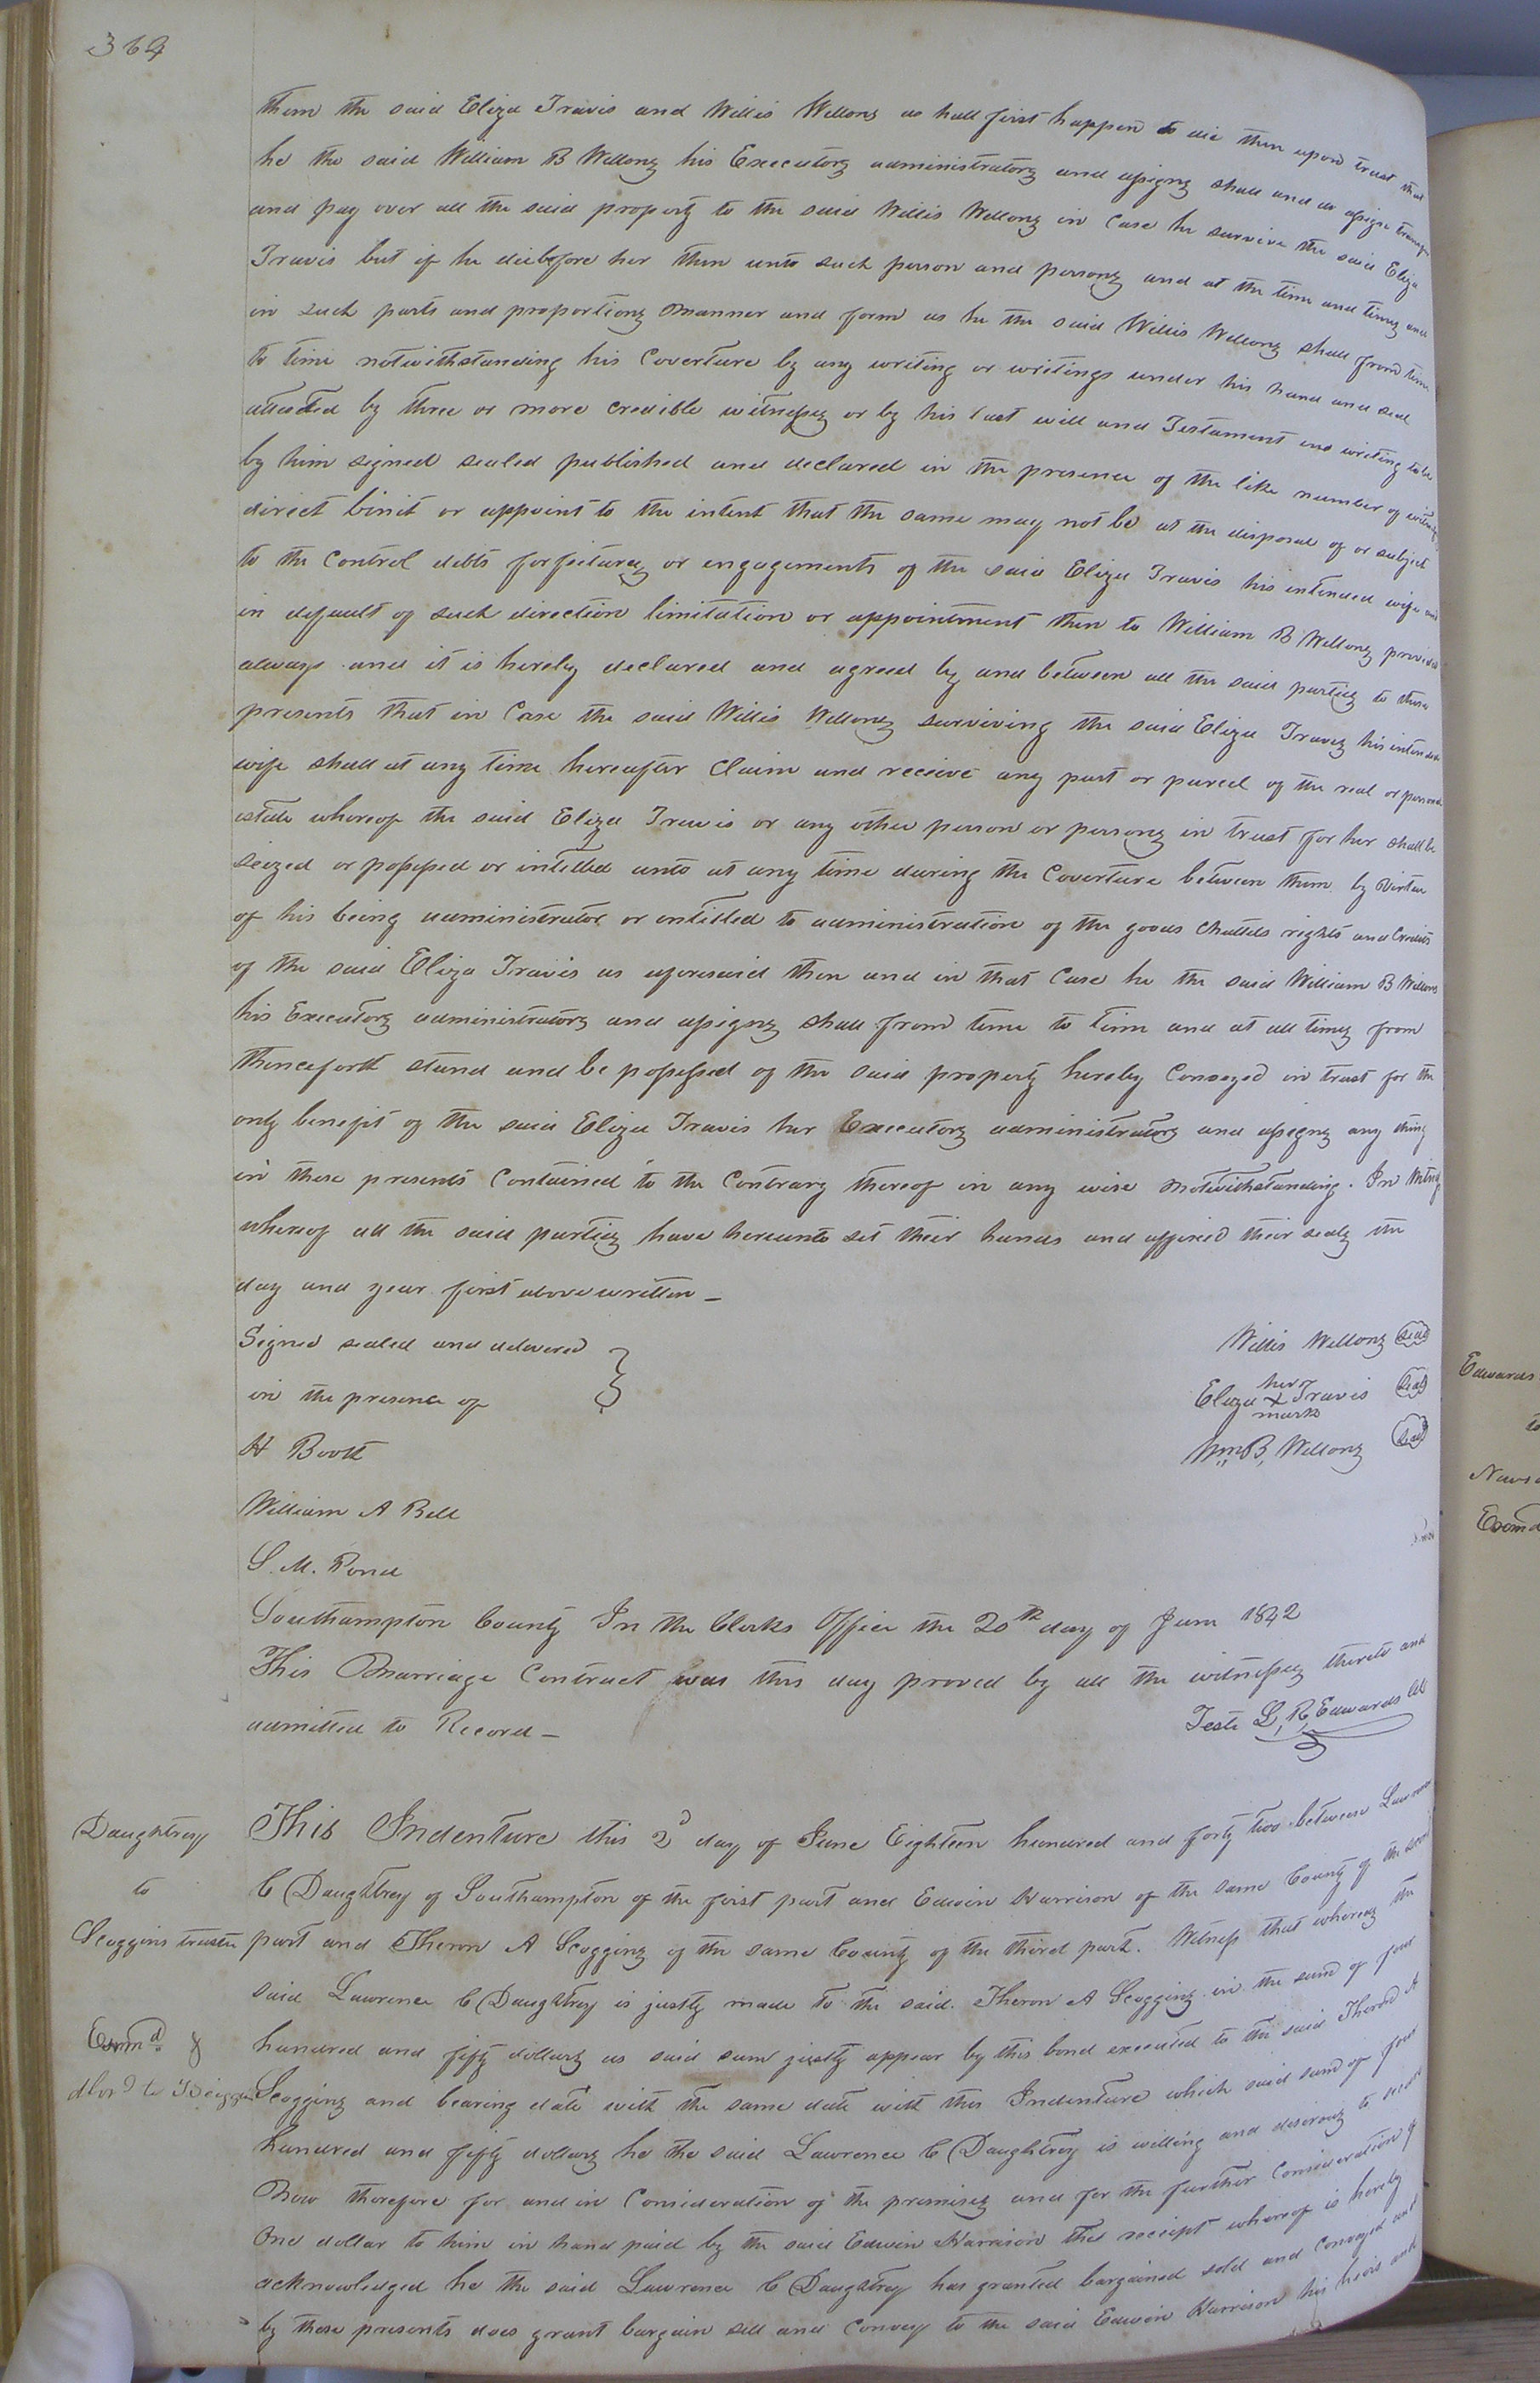 364
them the said Eliza Travis and Willis Wellons as shall first happen to die then upon trust that
he the said William B Wellons his Executors administrators and assigns shall and do assign transfer
and pay over all the said property to the said Willis Wellons in Case he survive the said Eliza
Travis but if he die before her then unto such person and persons and at the time and times and
in such parts and proportions manner and form as he the said Willis Wellons shall from time
to time notwithstanding his Coverture by any writing or writings under his hand and seal
attested by three or more credible witnesses or by his last will and Testament in writing to be
by him signed sealed published and declared in the presence of the like number of witnesses
direct limit or appoint to the intent that the same may not be at the disposal of or subject
to the Control debts forfeitures or engagements of the said Eliza Travis his intended wife and
in default of such direction limitation or appointment then to William B Wellons provided
always and it is hereby declared and agreed by and between all the said parties to these
presents that in Case the said Willis Wellons surviving the said Eliza Travis his intended
wife shall at any time hereafter Claim and receive any part or parcel of the real or personal
estate whereof the said Eliza Travis or any other person or persons in trust for her shall be
seized or possessed or intitled unto at any time during the Coverture between them by Virtue
of his being administrator or entitled to administration of the goods Chattels rights and Credits
of the said Eliza Travis as aforesaid then and in that Case he the said William B Wellons
his Executors administrators and assigns shall from time to time and at all times from
thenceforth stand and be possessed of the said property hereby Conveyed in trust for the
only benefit of the said Eliza Travis her Executors administrators and assigns any thing
in these presents Contained to the Contrary thereof in any wise notwithstanding. In Witness
whereof all the said parties have hereunto set their hands and affixed their seals the
day and year first above written –
Signed sealed and delivered
in the presence of
H Booth
William A Bell
S. M. Pond
Willis Wellons Seal
her
Eliza X Travis Seal
mark
Wm B, Wellons Seal
Southampton County In the Clerks Office the 20th day of June 1842
This Marriage Contract was this day proved by all the witnesses thereto and
admitted to Record –
Teste L, R, Edwards Clk
Daughtrey
to
Scoggins trustee
Exmd &
dlvd to
This Indenture this 2d day of June Eighteen hundred and forty two between Lawrence
C Daughtrey of Southampton of the first part and Edwin Harrison of the same County of the second
part and Theron A Scoggins of the same County of the third part. Witness that whereas the
said Lawrence C Daughtrey is justly made to the said Theron A Scoggins in the sum of four
hundred and fifty dollars as said sum justly appear by this bond executed to the said Theron A
Scoggins and bearing date with the same date with this Indenture which said sum of four
hundred and fifty dollars he the said Lawrence C Daughtrey is willing and desirous to secure
Now therefore for and in Consideration of the premises and for the further Consideration of
One dollar to him in hand paid by the said Edwin Harrison the receipt whereof is hereby
acknowledged he the said Lawrence C Daughtrey has granted bargained sold and Conveyed and
by these presents does grant bargain sell and Convey to the said Edwin Harrison his heirs and
Edwards
to
Exmd